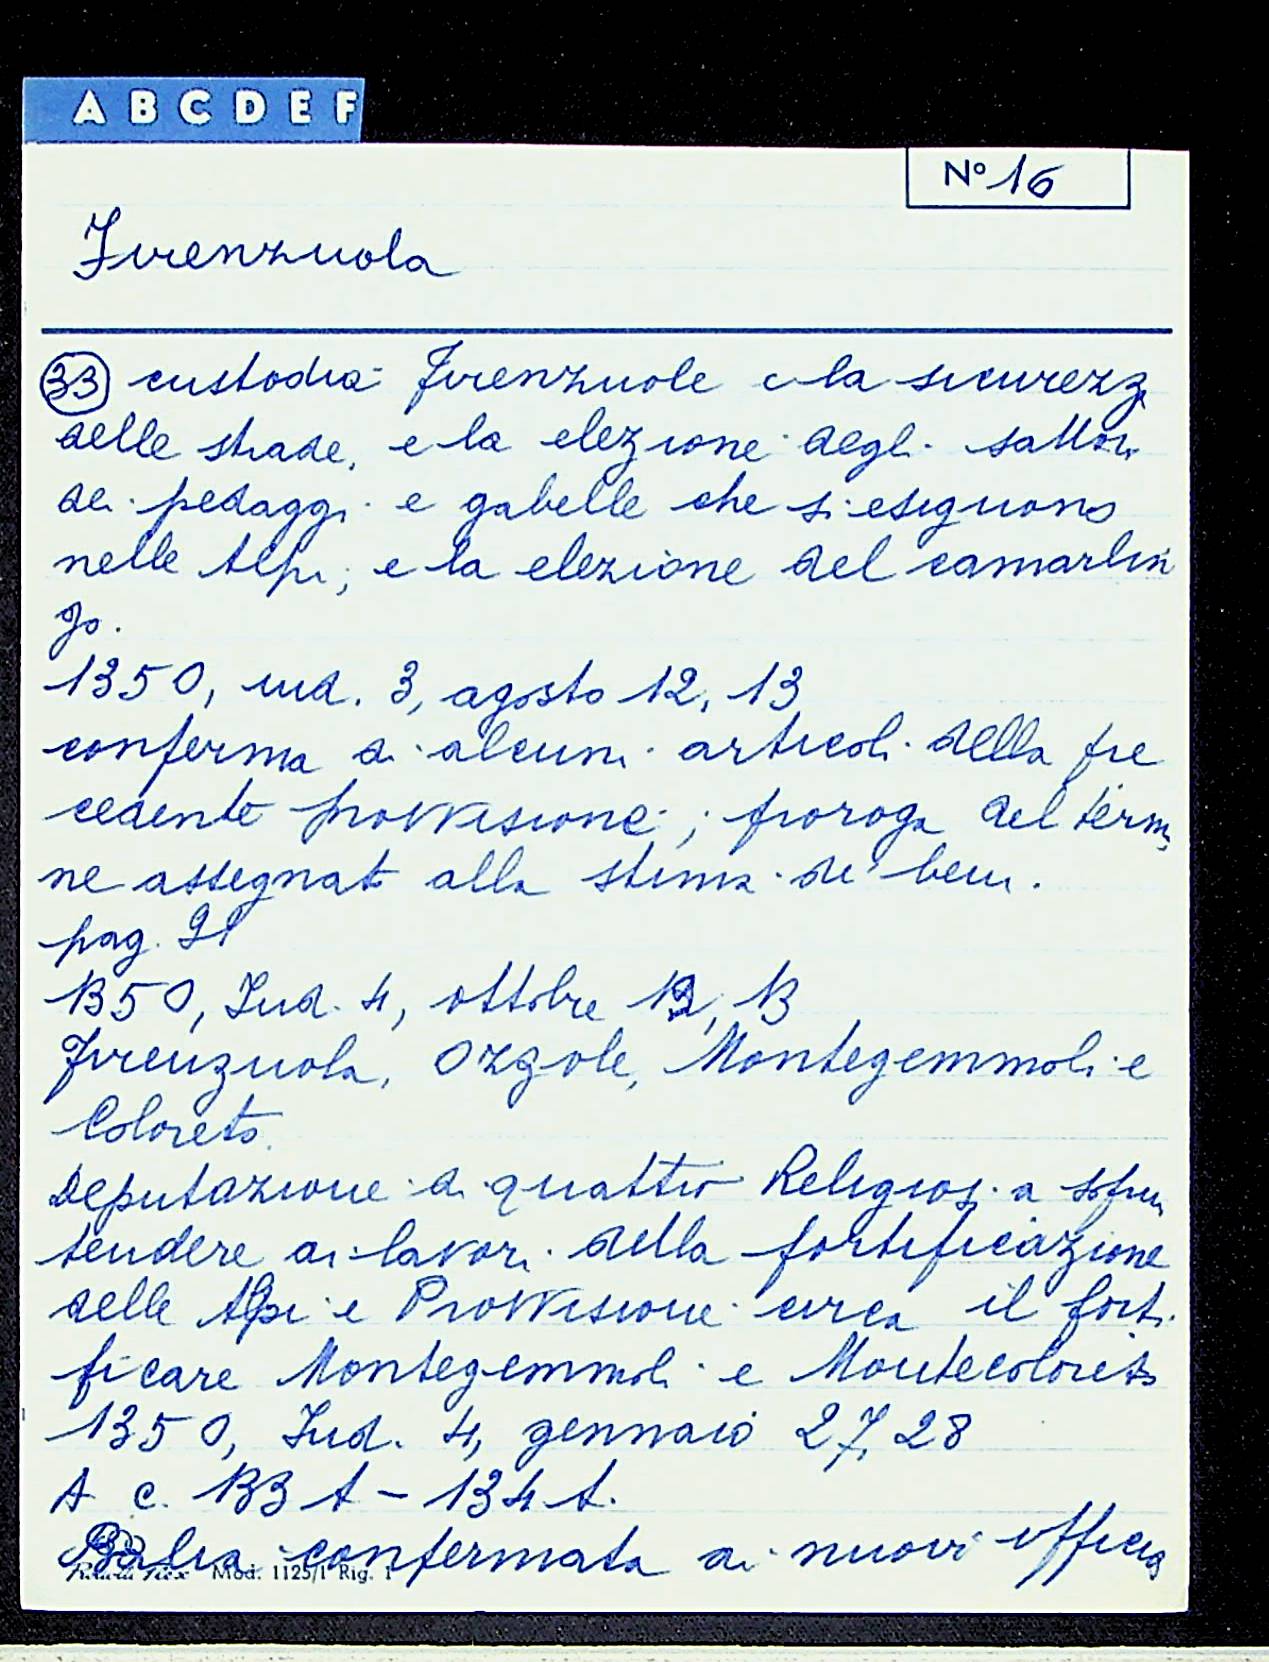 A B C D E F
N° 16
Firenzuola
33 custodia Firenzuole e la sicurezz
delle strade, e la elezione degli sattori
dei pedaggi e gabelle che si esiguono
nelle Alpi, e la elezione del camarlin
go.
1350, ind. 3, agosto 12, 13
conferma di alcuni articoli della pre
cedente provvisione; proroga del termi
ne assegnato alla stima de' beni.
pag. 91
1350, Ind. 4, ottobre 12, 13
Firenzuola, Ozgole, Montegemmoli e
Coloreto.
Deputazione di quattro Religiosi a soprin
tendere ai lavori della fortificazione
delle Alpi e Provvisione circa il forti
ficare Montegemmoli e Montecoloreto
1350, Ind. 4, gennaio 27, 28
A c. 133 t - 134 t.
Balia confermata ai nuovi officia
Mod. 1125/1 Rig. 1